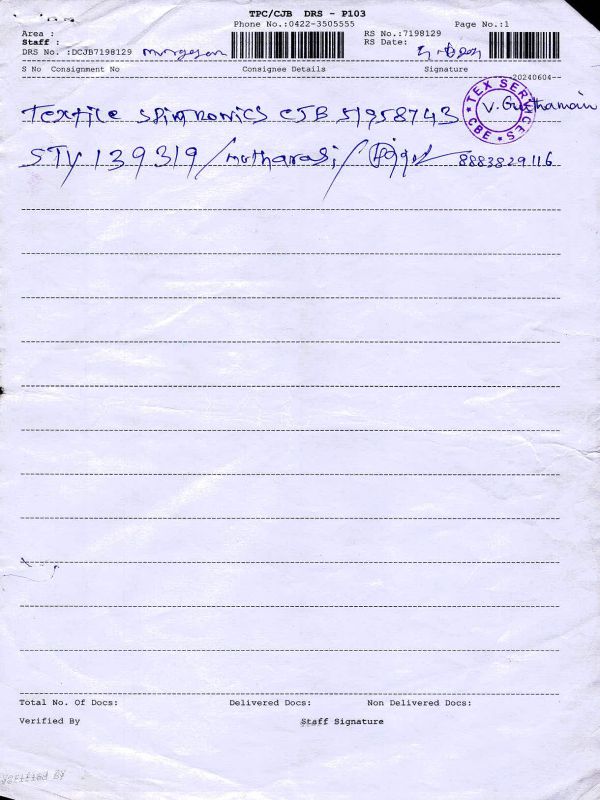 TPC/CJB DRS - P103
Phone No.:0422-3505555
Page No.:1
Area :
RS No.:7198129
Staff :
RS Date:
DRS No. :DCJB7198129 murugesan
S No Consignment No Consignee Details Signature
20240604
Textile spintronics CJB 51958743
TEX SERVICES
CBE
V. Gowthamain
STY 139319/mutharasi/ 8883829116
Total No. Of Docs: Delivered Docs: Non Delivered Docs:
Verified By Staff Signature
Verified By